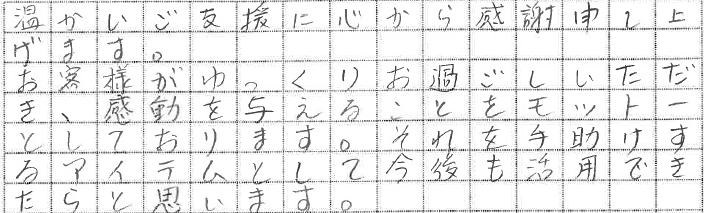 温かいご支援に心から感謝申し上
げます。
お客様がゆっくりお過ごしいただ
き、感動を与えることをモットー
としております。それを手助けす
るアイテムとして今後も活用でき
たらと思います。